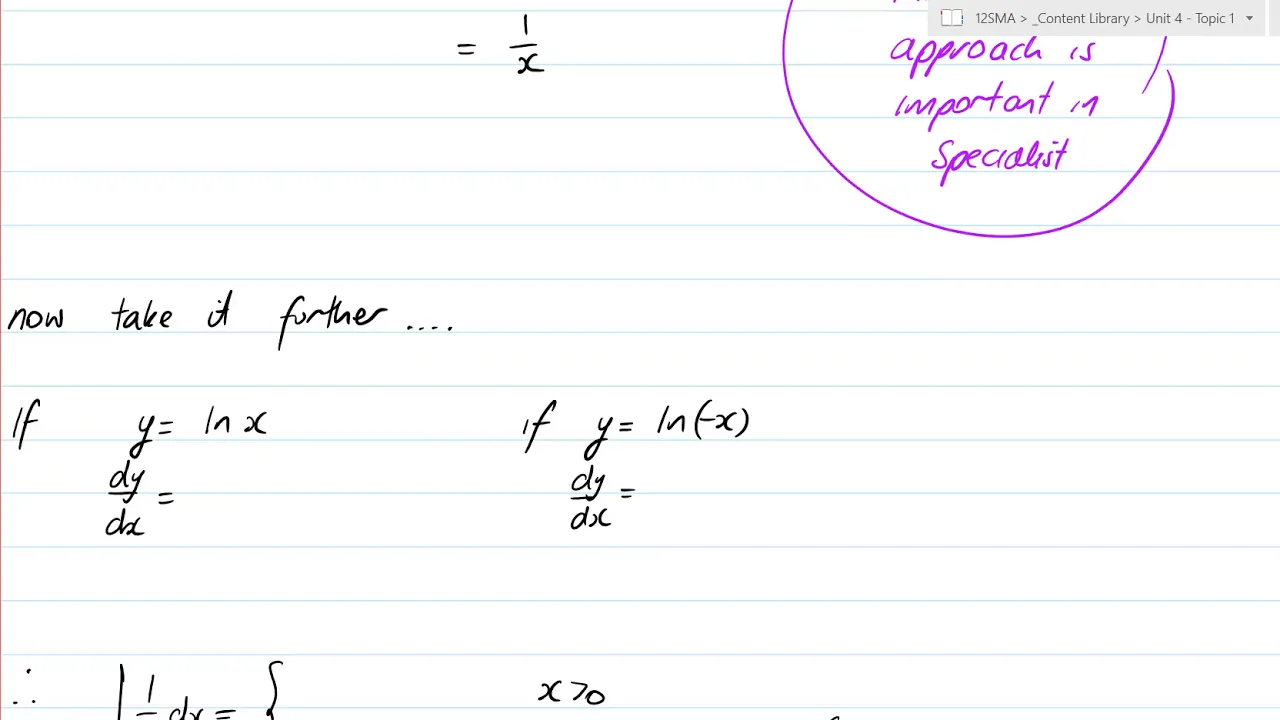 12SMA > _Content Library > Unit 4 - Topic 1
= 1/x
approach is
important in
Specialist
now take it further ....
If y = ln x
if y = ln(-x)
dy/dx =
dy/dx =
∴ ∫ 1/ dx = {
x > 0